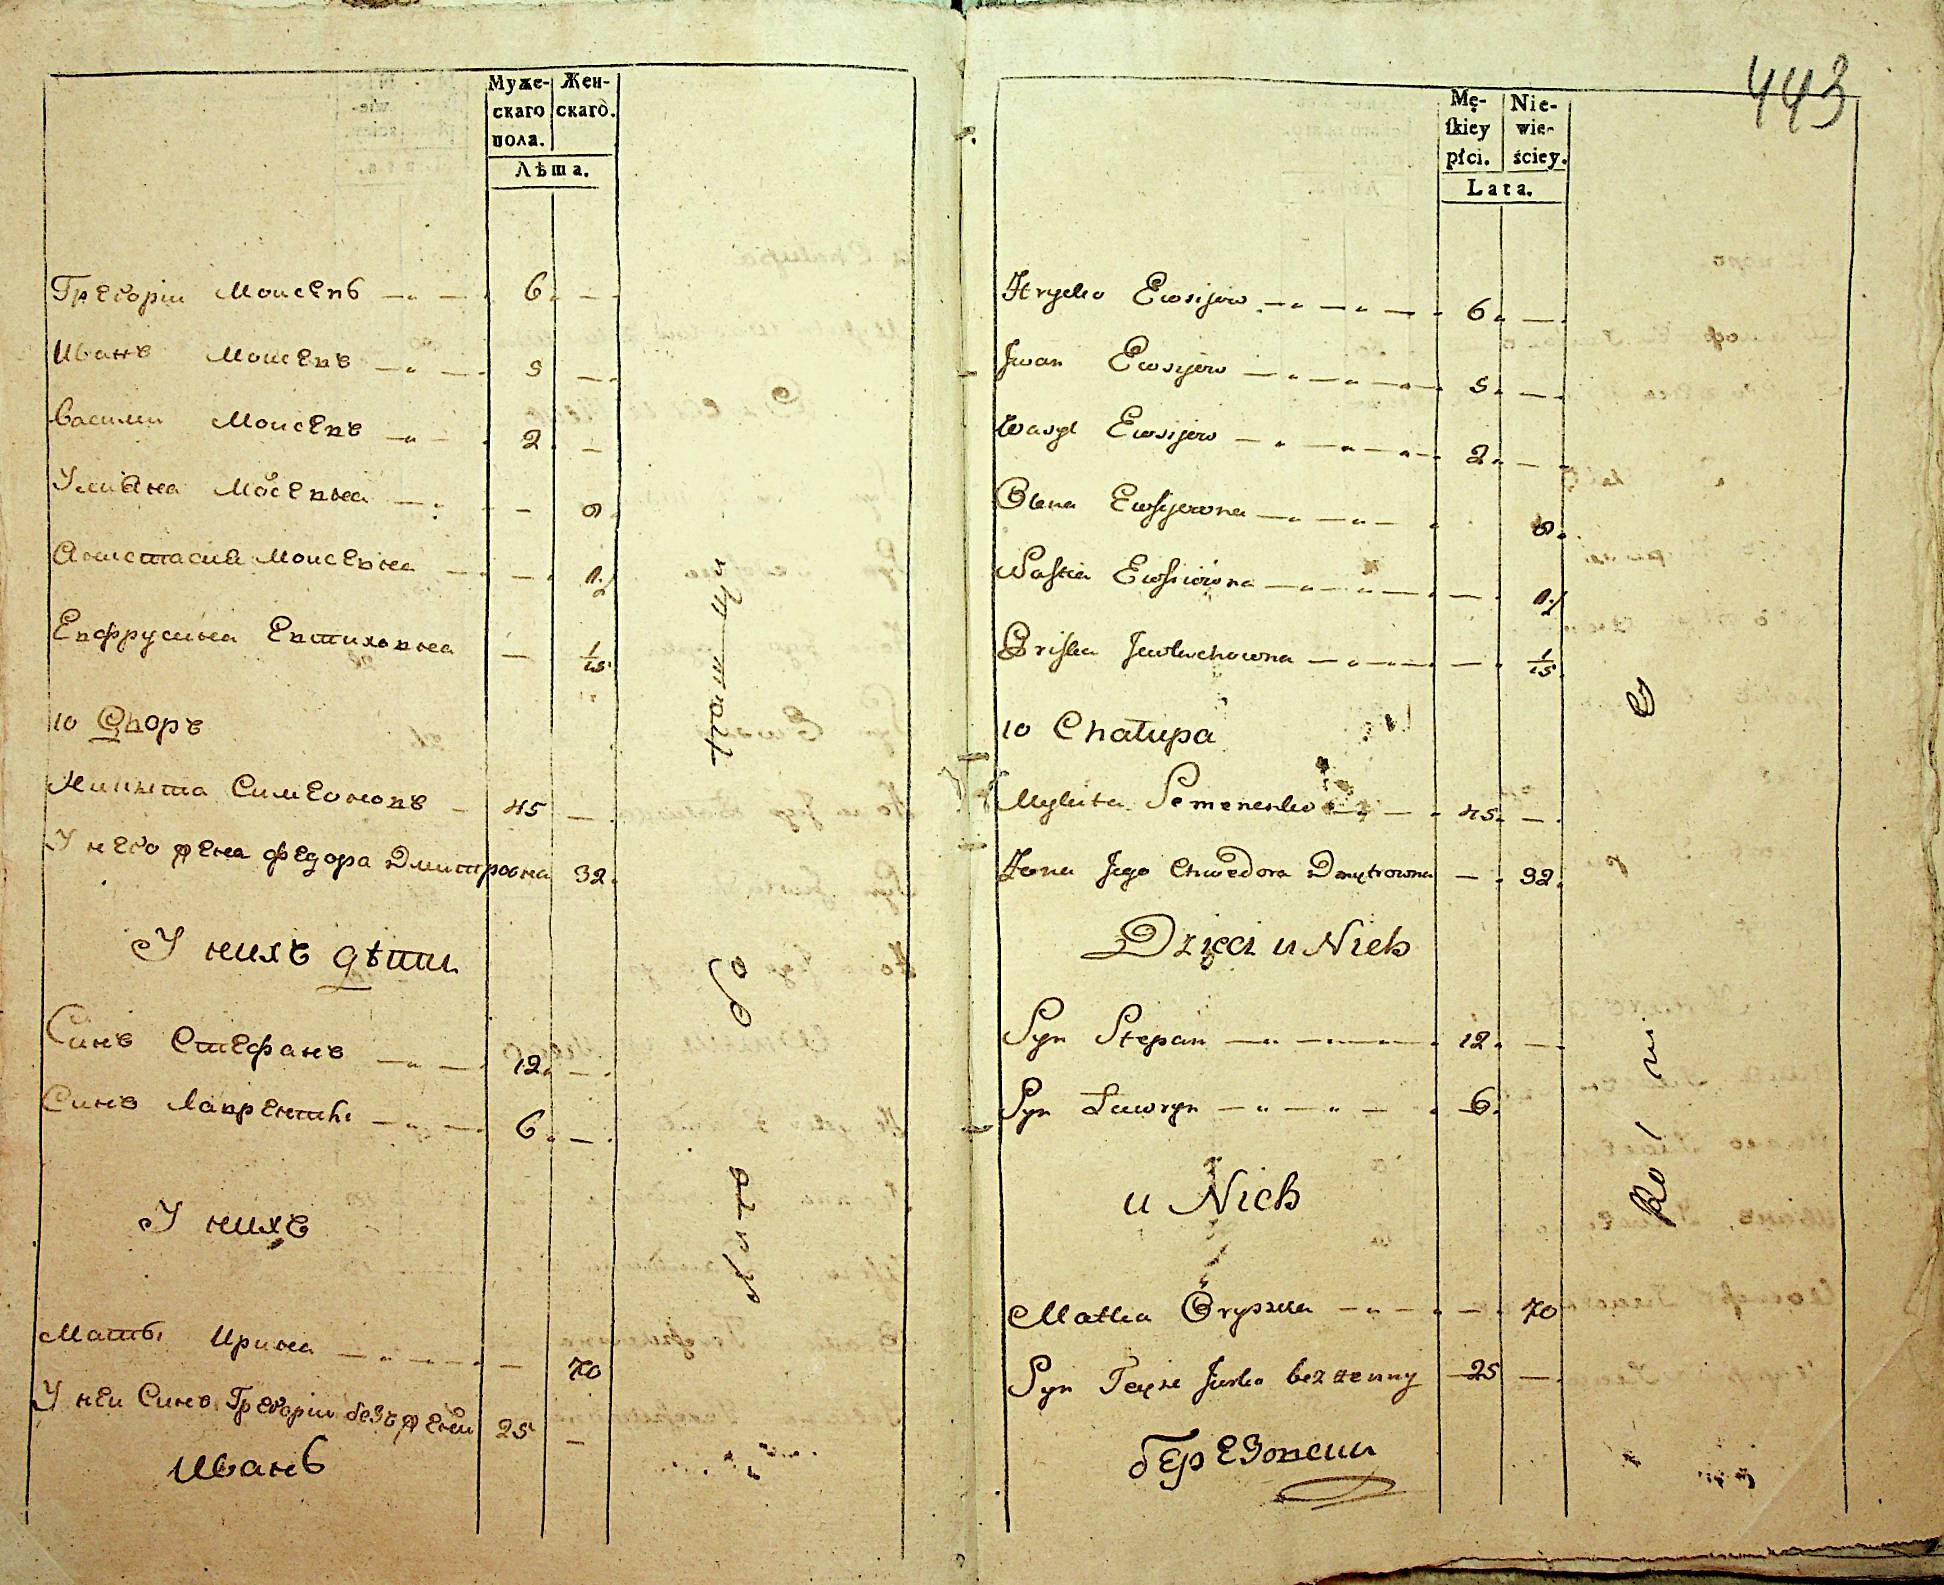 Муже-
скаго
пола.
Жен-
скаго.
Лѣта.
Грегории Моисеевъ 6. —
Иванъ Моисеевъ — 5 —
Василии Моисеевъ — 2. —
Улиана Моисеевна — — 8.
Анастасиа Моисеевна — —
Евфрусина Евтиховна — 1/15
10 Дворъ
Никита Симеоновъ — 45 —
У него жена Федора Дмитровна 32.
У нихъ дѣти
Синъ Стефанъ — 12. —
Синъ Лаврентий — 6. —
У нихъ
Мать Ирина — — 70
У неи Синъ Грегории безъженни 25 —
Иванъ
443
Mę-
skiey
płci.
Nie-
wie-
ściey.
Lata.
Hryćko Ewsijow — 6. —
Jwan Ewsijow — 5. —
Wasyl Ewsijow — 2. —
Olena Ewsijowna — 8.
Nastia Ewsiiowna — —
Pryska Jewtuchowna — — 1/15
10 Chałupa
Mykita Semenenko — 45. —
Żona Jego Chwedora Dmytrowna — 32.
Dzieci u Nich
Syn Stepan — 12. —
Syn Ławryn — 6.
u Nich
Matka Oryszka — — 70
Syn Teyże Jurko bezżenny 25 —
березовски